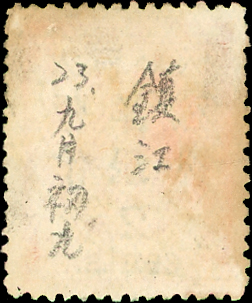 鎮江
23.九月初九